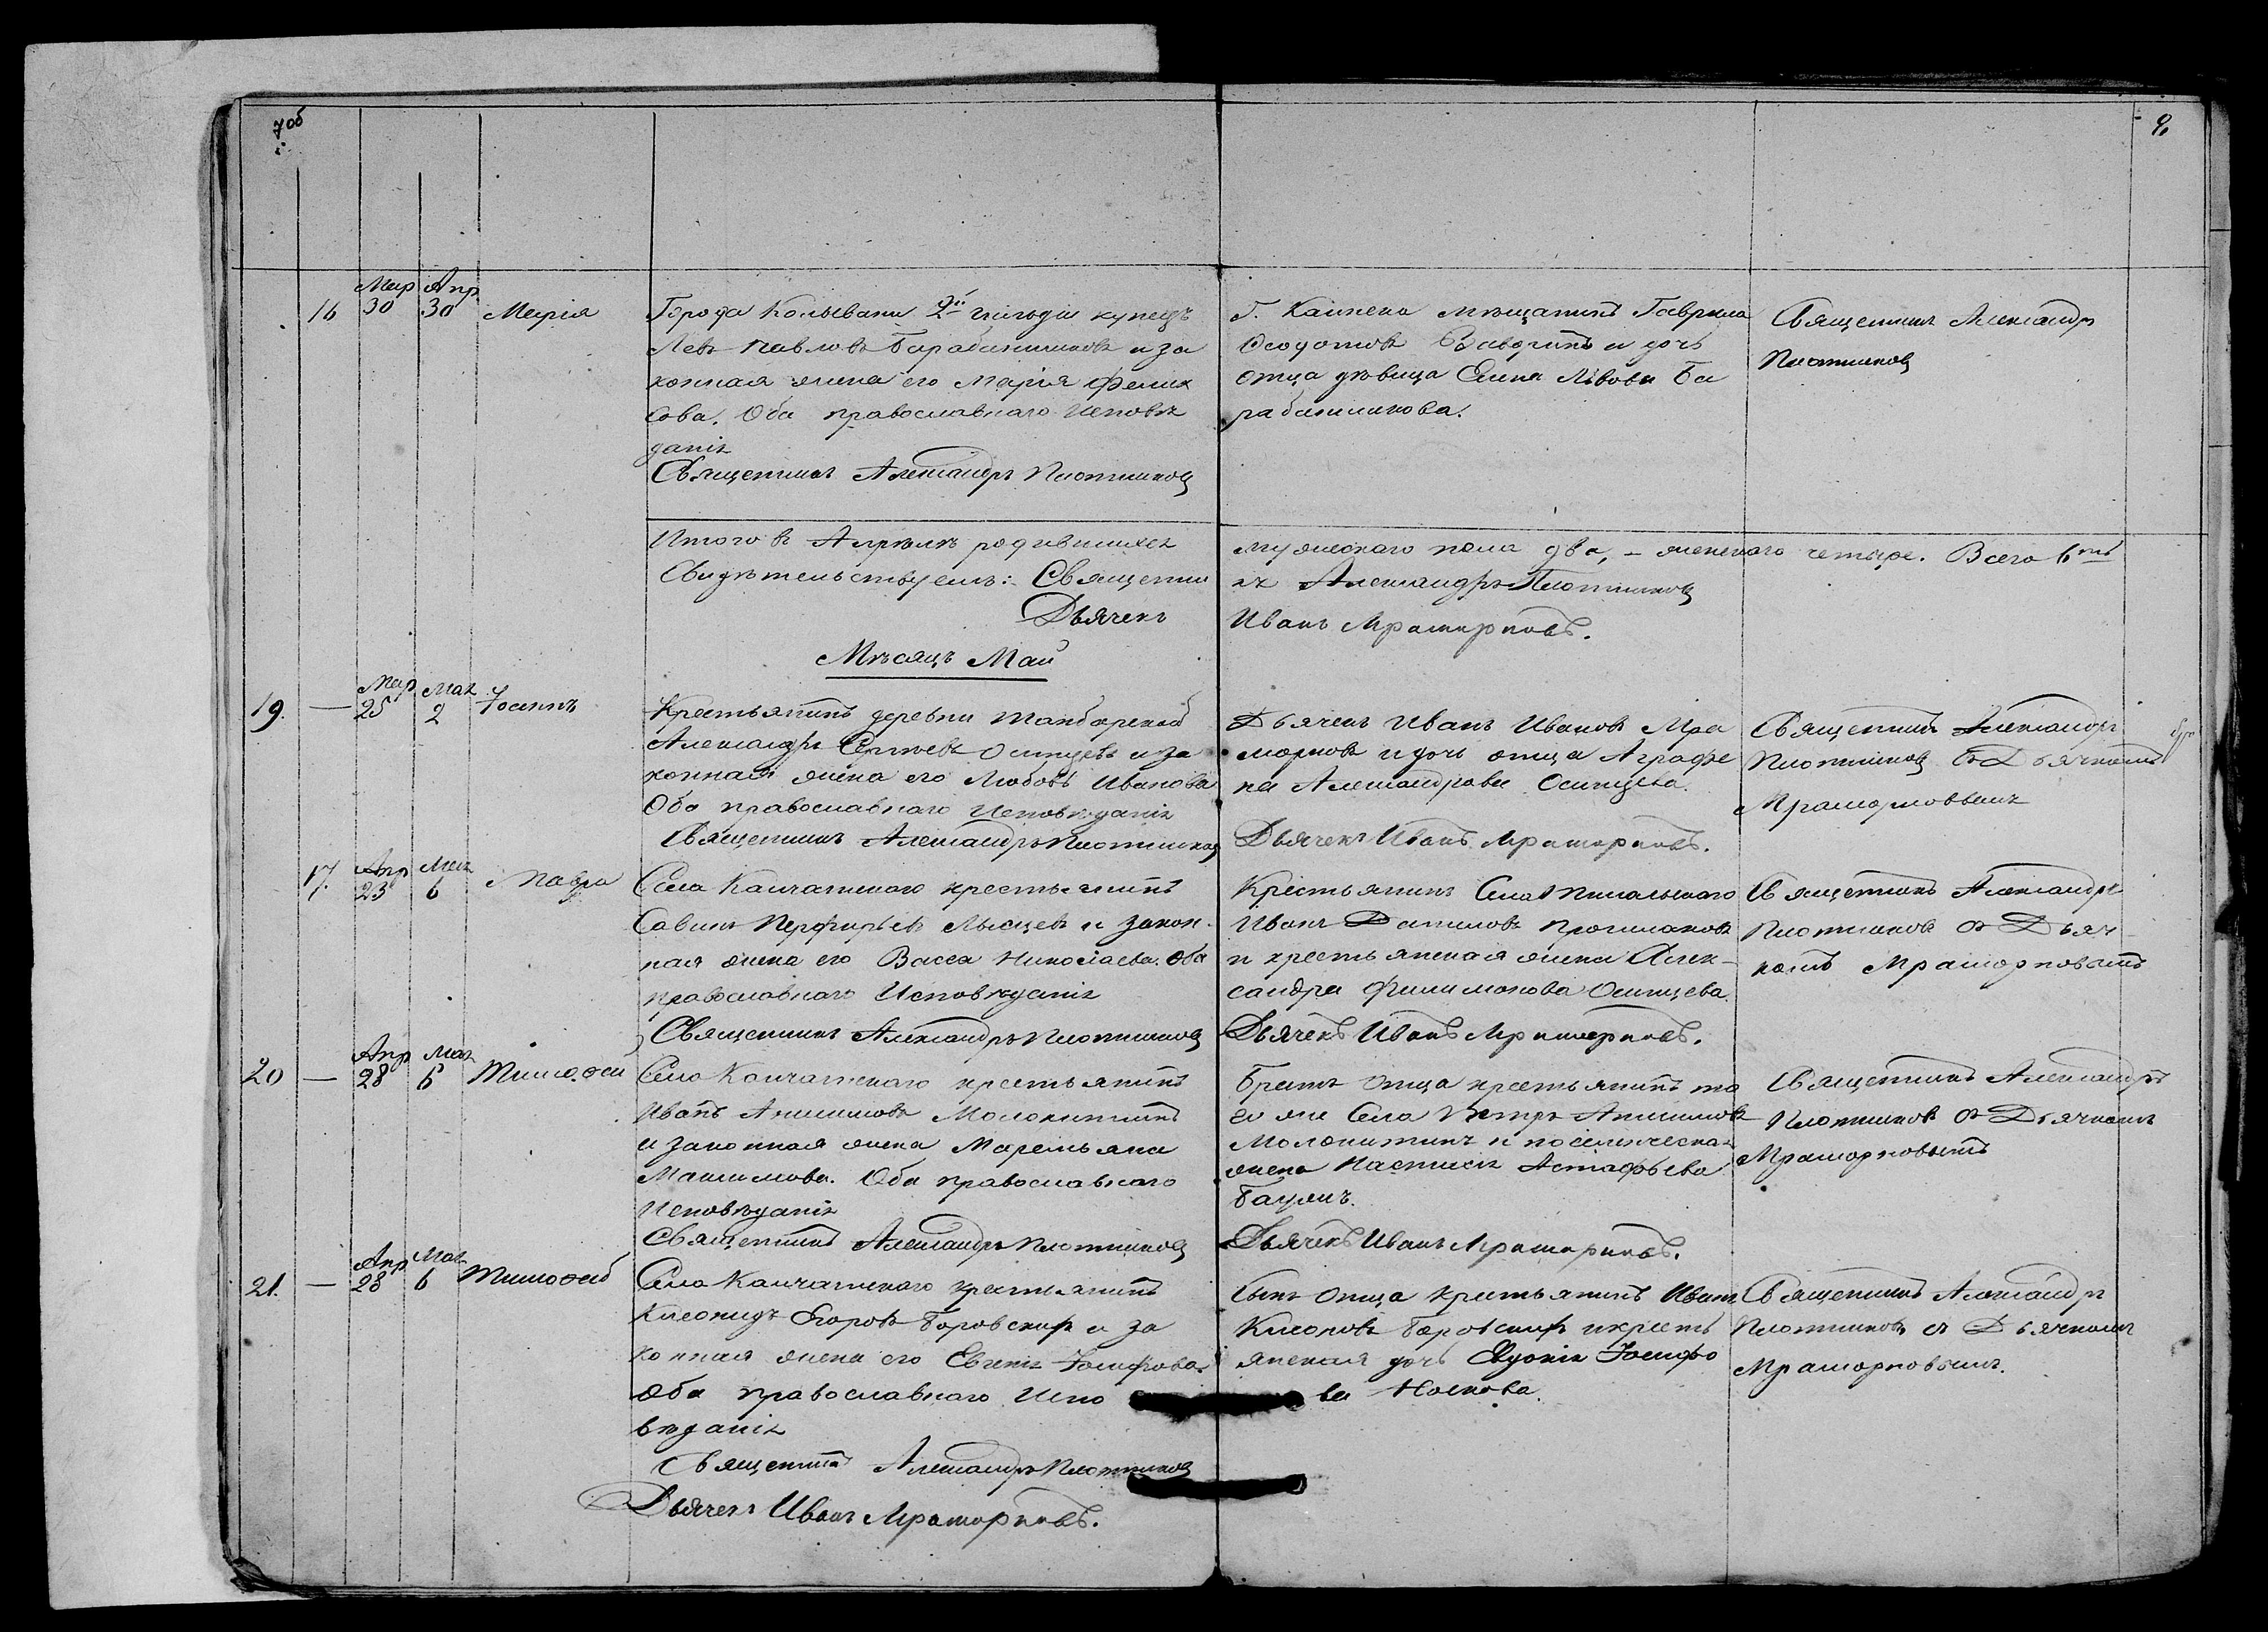 7об
8
16
Мар Апр
30 30
Марія
Города Колывани 2й гильдіи купецъ
Левъ Павловъ Барабанщиковъ и за
конная жена его Марія Феликсова. Оба православнаго Исповѣ
данія
Священникъ Александръ Плотниковъ
Г. Каинска мѣщанинъ Гаврила
Ѳеодотовъ и дочь
отца дѣвица Елена Львова Ба
рабанщикова.
Священникъ Александръ
Плотниковъ
Итого въ Апрѣлѣ родившихся
мужескаго пола два, – женскаго четыре. Всего 6ть
Свидѣтельствуемъ: Священни
къ Александръ Плотниковъ
Дьячекъ
Иванъ Мраморновъ.
Мѣсяцъ Май
19. —
Мар Мая
25 2
Іоаннъ
Крестьянинъ деревни
Александръ Сергѣевъ Осинцевъ и за
конная жена его Любовь Иванова
Оба православнаго Исповѣданія
Священникъ Александръ Плотниковъ
Дьячекъ Иванъ Ивановъ Мра
морновъ и дочь отца Аграфе
на Александрова Осинцева.
Дьячекъ Иванъ Мраморновъ.
Священникъ Александръ
Плотниковъ съ Дьячкомъ
Мраморновымъ
17.
Апр Мая
23 6
Мавра
Села Камчатскаго крестьянинъ
Савинъ Перфирьевъ и закон
ная жена его Васса Николаева. Оба
православнаго Исповѣданія
Священникъ Александръ Плотниковъ
Крестьянинъ Села
Иванъ Даниловъ
и крестьянская жена Алек-
сандра Филимонова Осинцева.
Дьячекъ Иванъ Мраморновъ.
Священникъ Александръ
Плотниковъ съ Дьяч-
комъ Мраморновымъ
20 —
Апр Мая
28 6
Тимоѳей
Села Камчатскаго крестьянинъ
Иванъ Анисимовъ Молокитинъ
и законная жена Маремьяна
Максимова. Оба православнаго
Исповѣданія
Священникъ Александръ Плотниковъ
Братъ отца крестьянинъ то
го же Села Петръ Анисимовъ
Молокитинъ и поселенческа
жена Настасья Астафьева
Дьячекъ Иванъ Мраморновъ.
Священникъ Александръ
Плотниковъ съ Дьячкомъ
Мраморновымъ
21. —
Апр Мая
28 6
Тимоѳей
Села Камчатскаго крестьянинъ
Егоровъ Боровских и за
конная жена его Евгенія Іосифова.
Оба православнаго Испо
вѣданія
Священникъ Александръ Плотниковъ
Дьячекъ Иванъ Мраморновъ.
Сынъ отца крестьянинъ Иванъ
Боровских и кресть
янская дочь Евдокія Іосифо
ва Носкова.
Священникъ Александръ
Плотниковъ съ Дьячкомъ
Мраморновымъ.